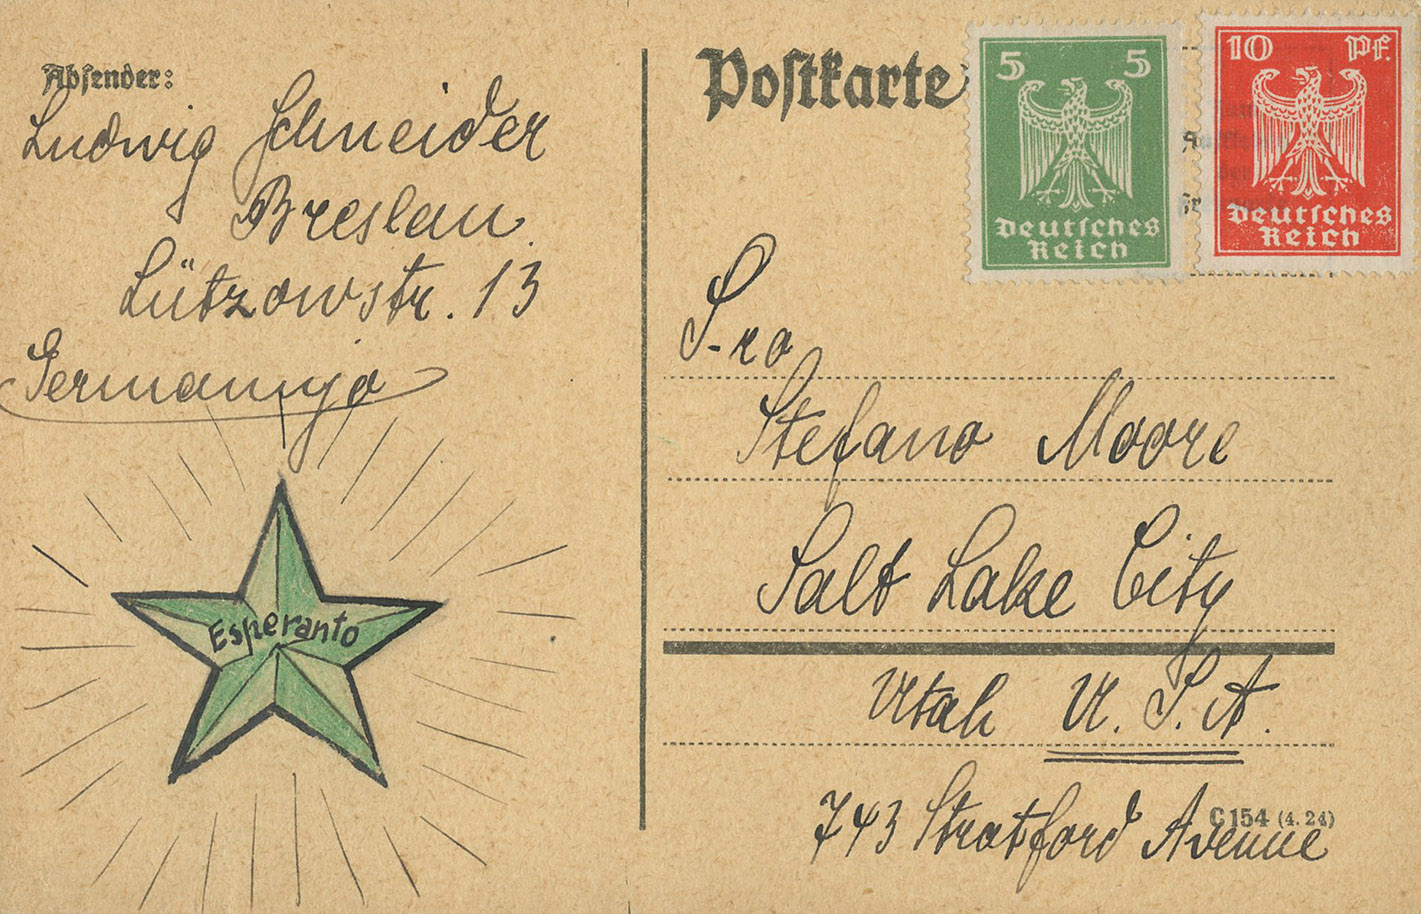 Absender:
Ludwig Schneider
Breslau
Lützowstr. 13
Germanujo
Esperanto
Postkarte
5 5
Deutsches
Reich
10 Pf.
Deutsches
Reich
S-ro
Stefano Moore
Salt Lake City
Utah U.S.A.
743 Stratford Avenue
C 154 (4.24)